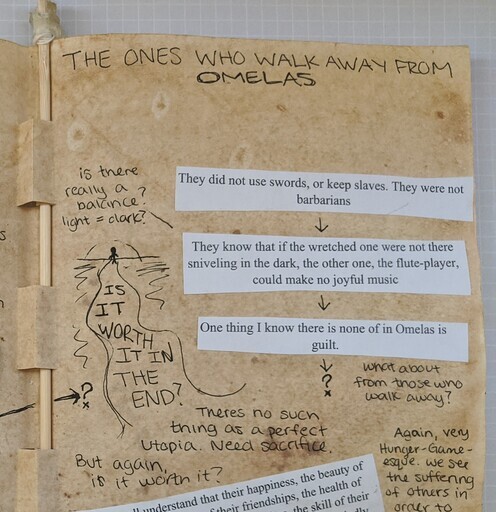 THE ONES WHO WALK AWAY FROM
OMELAS
is there
really a
balance?
light = dark?
They did not use swords, or keep slaves. They were not
barbarians
They know that if the wretched one were not there
sniveling in the dark, the other one, the flute-player,
could make no joyful music
IS
IT
WORTH
IT IN
THE
END?
One thing I know there is none of in Omelas is
guilt.
?
what about
from those who
walk away?
?
Theres no such
thing as a perfect
Utopia. Need sacrifice.
But again,
is it worth it?
Again, very
Hunger-Game-
esque. we see
the suffering
of others in
order to
understand that their happiness, the beauty of
their friendships, the health of
the skill of their